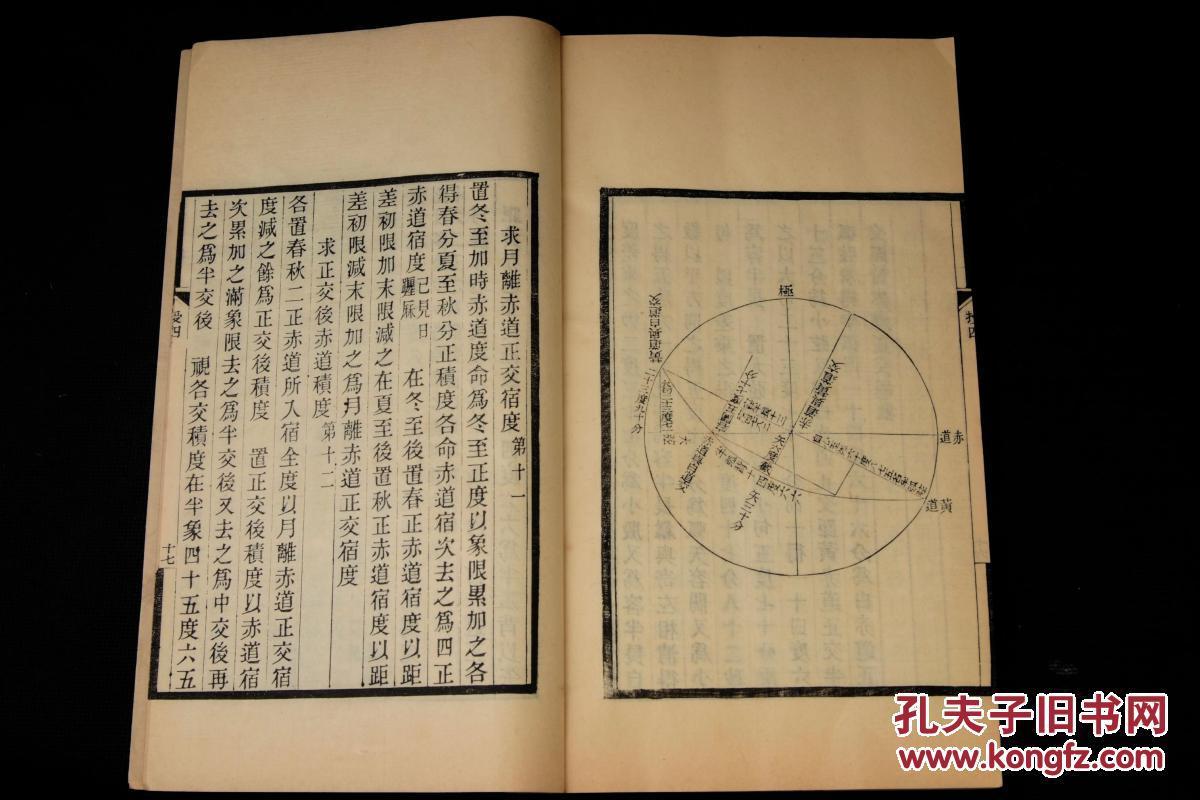 極
赤道
黃道
黃道與白道交
赤道與黃道交
二十三度九十分
投四
求月離赤道正交宿度第十一
置冬至加時赤道度命為冬至正度以象限累加之各
得春分夏至秋分正積度各命赤道宿次去之為四正
赤道宿度已見日躔厤　在冬至後置春正赤道宿度以距
差初限加末限減之在夏至後置秋正赤道宿度以距
差初限減末限加之為月離赤道正交宿度
求正交後赤道積度第十二
各置春秋二正赤道所入宿全度以月離赤道正交宿
度減之餘為正交後積度　置正交後積度以赤道宿
次累加之滿象限去之為半交後又去之為中交後再
去之為半交後　視各交積度在半象四十五度六五
投四
十七
孔夫子旧书网
www.kongfz.com